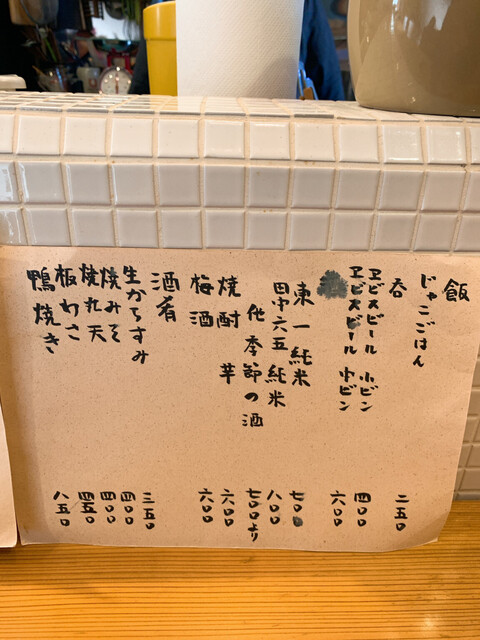 飯
じゃこごはん 二五〇
呑
ヱビスビール 小ビン 四〇〇
ヱビスビール 中ビン 六〇〇
東一純米 七〇〇
田中六五 純米 八〇〇
他 季節の酒 七〇〇より
焼酎 芋 六〇〇
梅酒 六〇〇
酒肴
生からすみ 三五〇
焼みそ 四〇〇
焼丸天 四〇〇
板わさ 四五〇
鴨焼き 八五〇